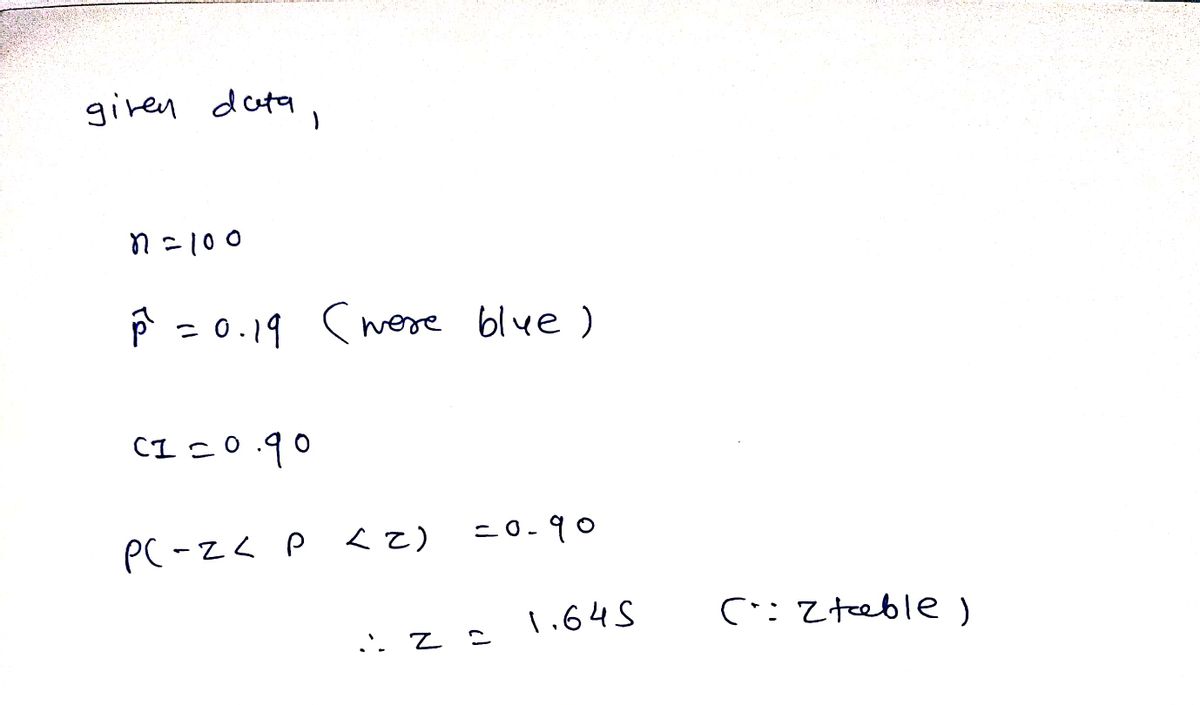 given data,
n = 100
p̂ = 0.19 (were blue)
CI = 0.90
P(-z < p < z) = 0.90
∴ z = 1.645 (∵ z table)